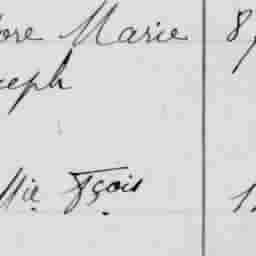 ore Marie 8
eph
llie Fçois 1